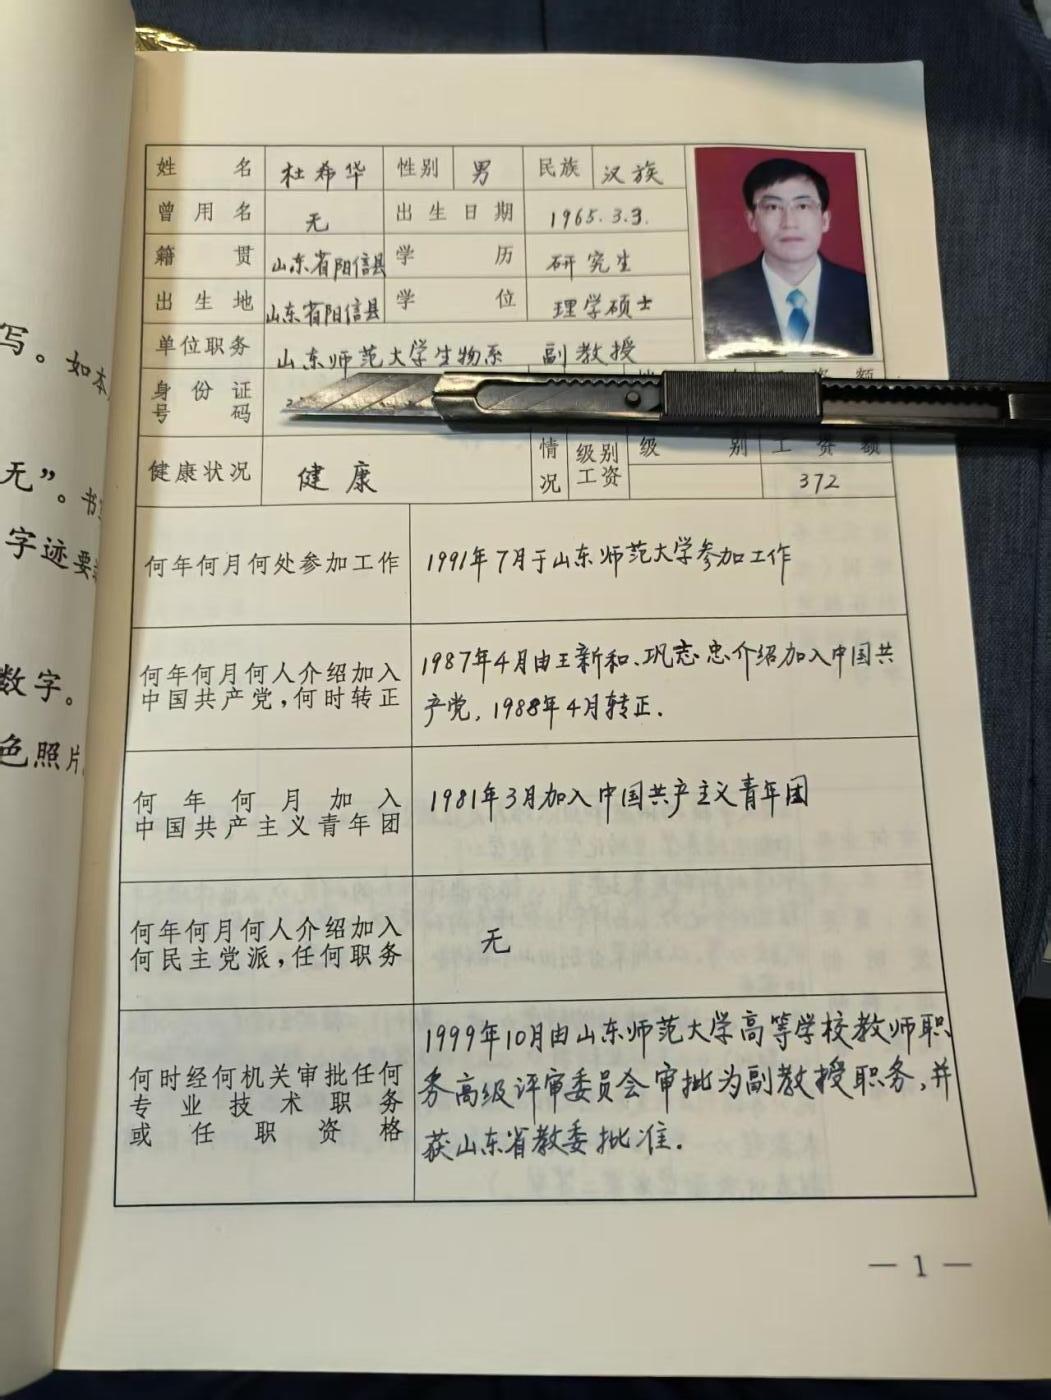 写。如本
无”。书写
字迹要
数字。
色照片
姓名 杜希华 性别 男 民族 汉族
曾用名 无 出生日期 1965.3.3.
籍贯 山东省阳信县 学历 研究生
出生地 山东省阳信县 学位 理学硕士
单位职务 山东师范大学生物系 副教授
身份证
号码
健康状况 健康 情况 级别工资 级别 工资额
372
何年何月何处参加工作 1991年7月于山东师范大学参加工作
何年何月何人介绍加入 1987年4月由王新和、巩志忠介绍加入中国共
中国共产党,何时转正 产党,1988年4月转正.
何年何月加入 1981年3月加入中国共产主义青年团
中国共产主义青年团
何年何月何人介绍加入 无
何民主党派,任何职务
1999年10月由山东师范大学高等学校教师职
何时经何机关审批任何 务高级评审委员会审批为副教授职务,并
专业技术职务 获山东省教委批准.
或任职资格
— 1 —